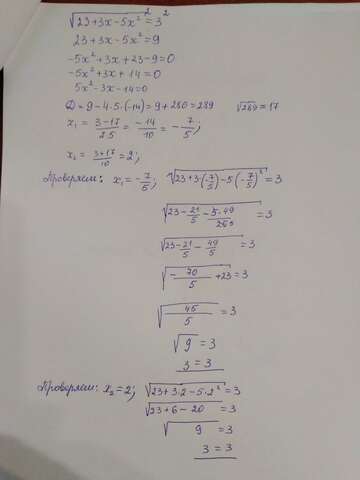 √(23+3x-5x²)² = 3²
23+3x-5x²=9
-5x²+3x+23-9=0
-5x²+3x+14=0
5x²-3x-14=0
D=9-4·5·(-14)=9+280=289 √289=17
x₁ = (3-17)/(2·5) = -14/10 = -7/5;
x₂ = (3+17)/10 = 2;
Проверяем: x₁=-7/5; √(23+3·(-7/5)-5(-7/5)²)=3
√(23-21/5-5·49/255)=3
√(23-21/5-49/5)=3
√(-70/5+23)=3
√(45/5)=3
√9=3
3=3
Проверяем: x₂=2; √(23+3·2-5·2²)=3
√(23+6-20)=3
√9=3
3=3